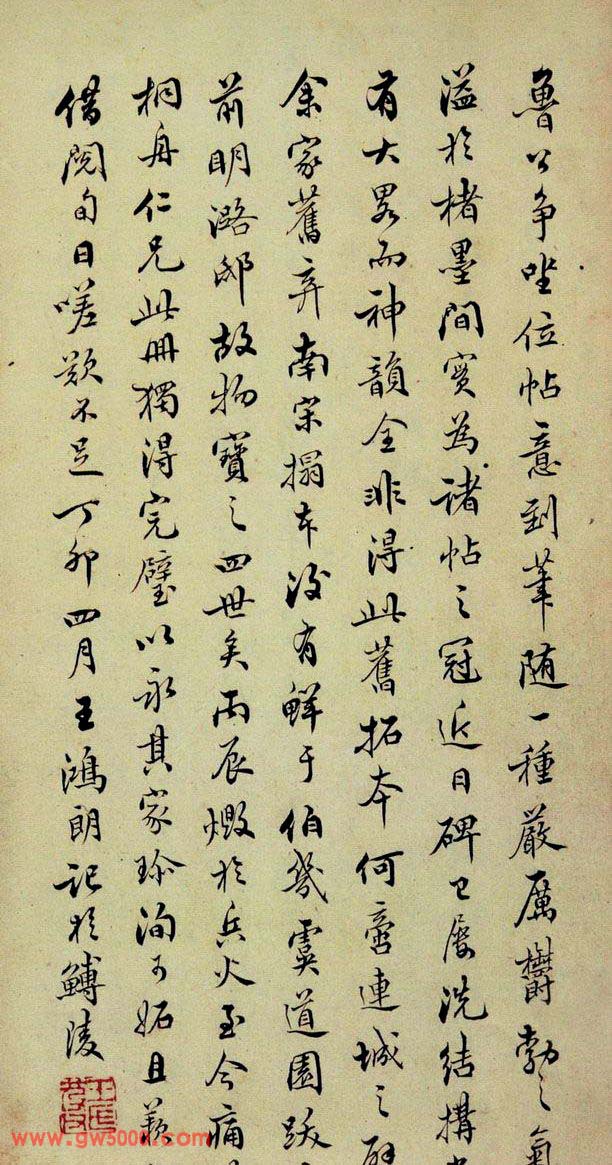 魯公争坐位帖意到筆随一種嚴厲欝勃之氣
溢於楮墨間實為諸帖之冠近日碑已屡洗結搆
有大畧而神韻全非得此舊拓本何啻連城之
余家舊弆南宋搨本後有鮮于伯幾虞道園跋
前明潞邸故物寶之四世矣丙辰燬於兵火至今痛
桐舟仁兄此冊獨得完璧以永其家珎洵可妬且羡
借閲旬日嗟歎不足丁卯四月王鴻朗記於鱄陵
www.gw500d.com